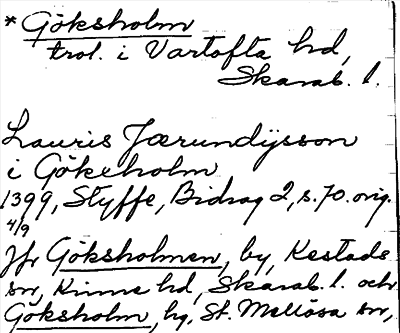 * Göksholm
trol. i Vartofta hd,
Skarab. l.
Lauris Jærundysson
i Gökeholm
1399, Styffe, Bidrag 2, s. 70. orig.
4/9
Jfr Göksholmen, by, Kestads
sn, Kinne hd, Skarab. l. och
Göksholm, hg, St. Mellösa sn,